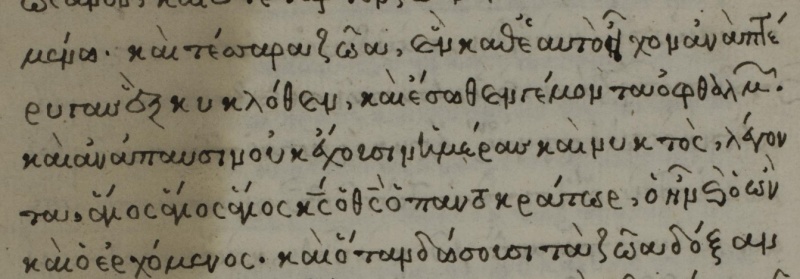 μένω. καὶ τέσσαρα ζῶα, ἓν καθἑαυτὸ εἶχον ἀνὰ πτέ
ρυγας ἓξ κυκλόθεν, καὶ ἔσωθεν γέμοντα ὀφθαλμῶν.
καὶ ἀνάπαυσιν οὐκ ἔχουσιν ἡμέρας καὶ νυκτὸς, λέγον
τα, ἅγιος ἅγιος ἅγιος κς ὁ θς ὁ παντοκράτωρ, ὁ ἦν καὶ ὁ ὢν
καὶ ὁ ἐρχόμενος. καὶ ὅταν δώσουσι τὰ ζῶα δόξαν